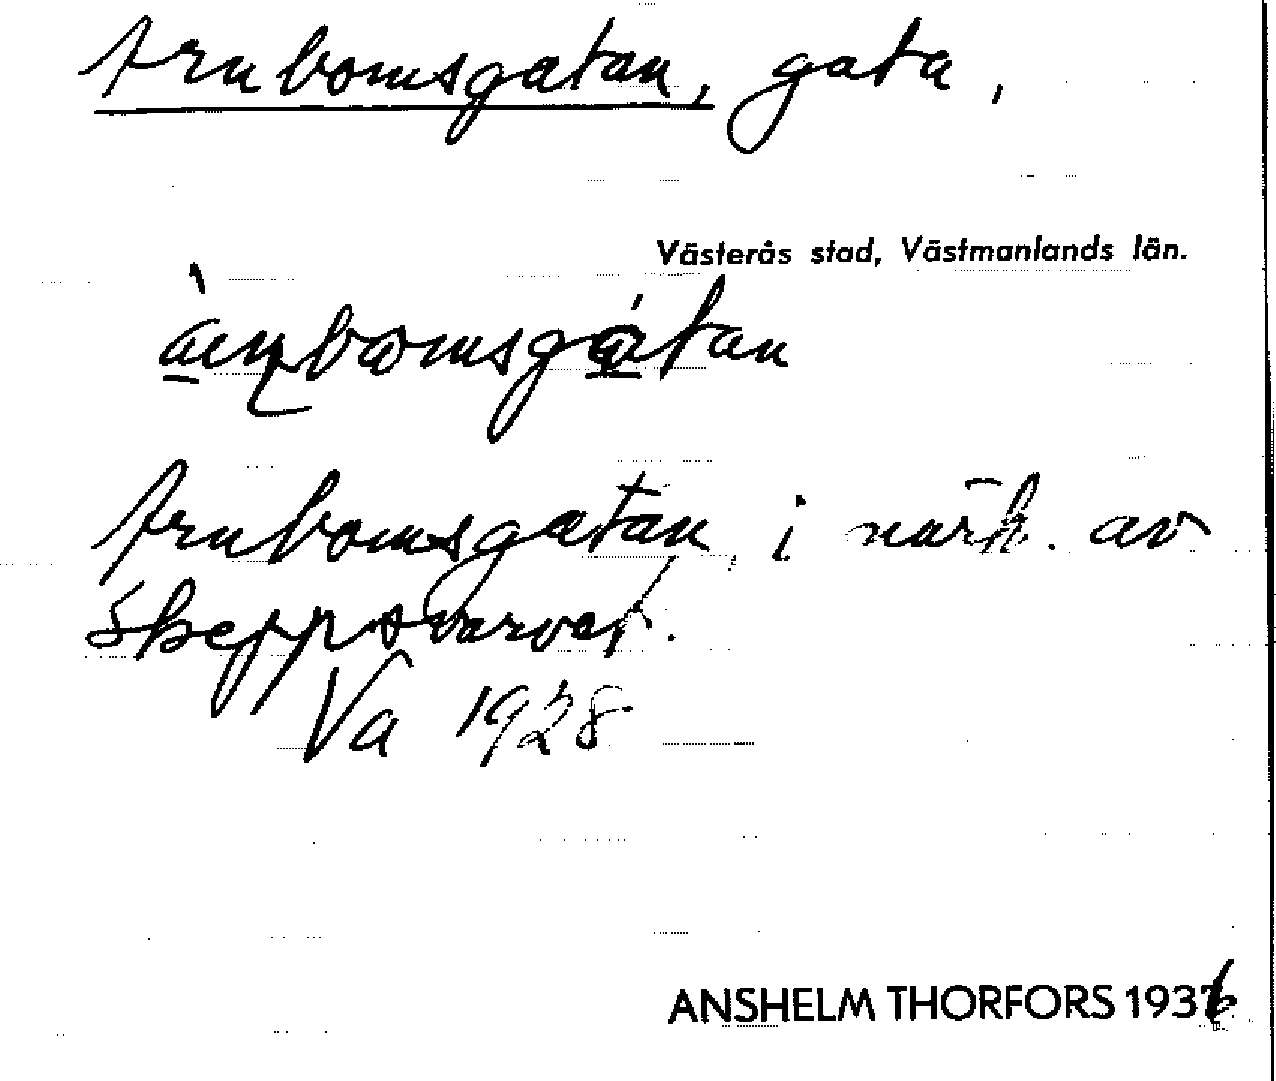 Arnbomsgatan, gata,
Västerås stad, Västmanlands län.
Arnbomsgatan, i närh. av
Skeppsvarvet.
Va 1928
ANSHELM THORFORS 1936